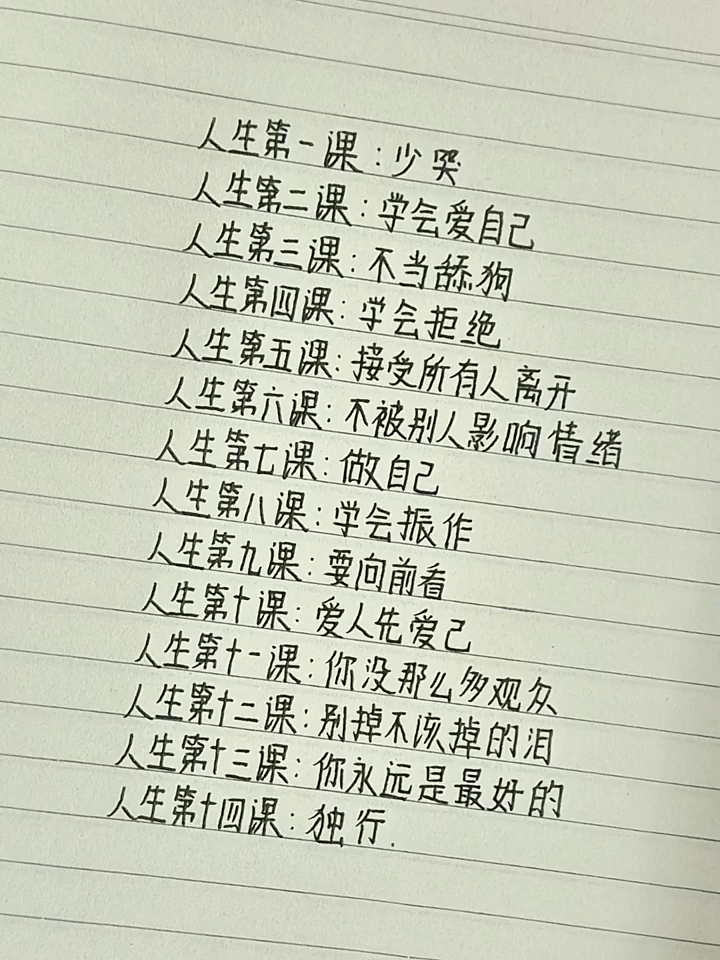 人生第一课:少哭
人生第二课:学会爱自己
人生第三课:不当舔狗
人生第四课:学会拒绝
人生第五课:接受所有人离开
人生第六课:不被别人影响情绪
人生第七课:做自己
人生第八课:学会振作
人生第九课:要向前看
人生第十课:爱人先爱己
人生第十一课:你没那么多观众
人生第十二课:别掉不该掉的泪
人生第十三课:你永远是最好的
人生第十四课:独行.